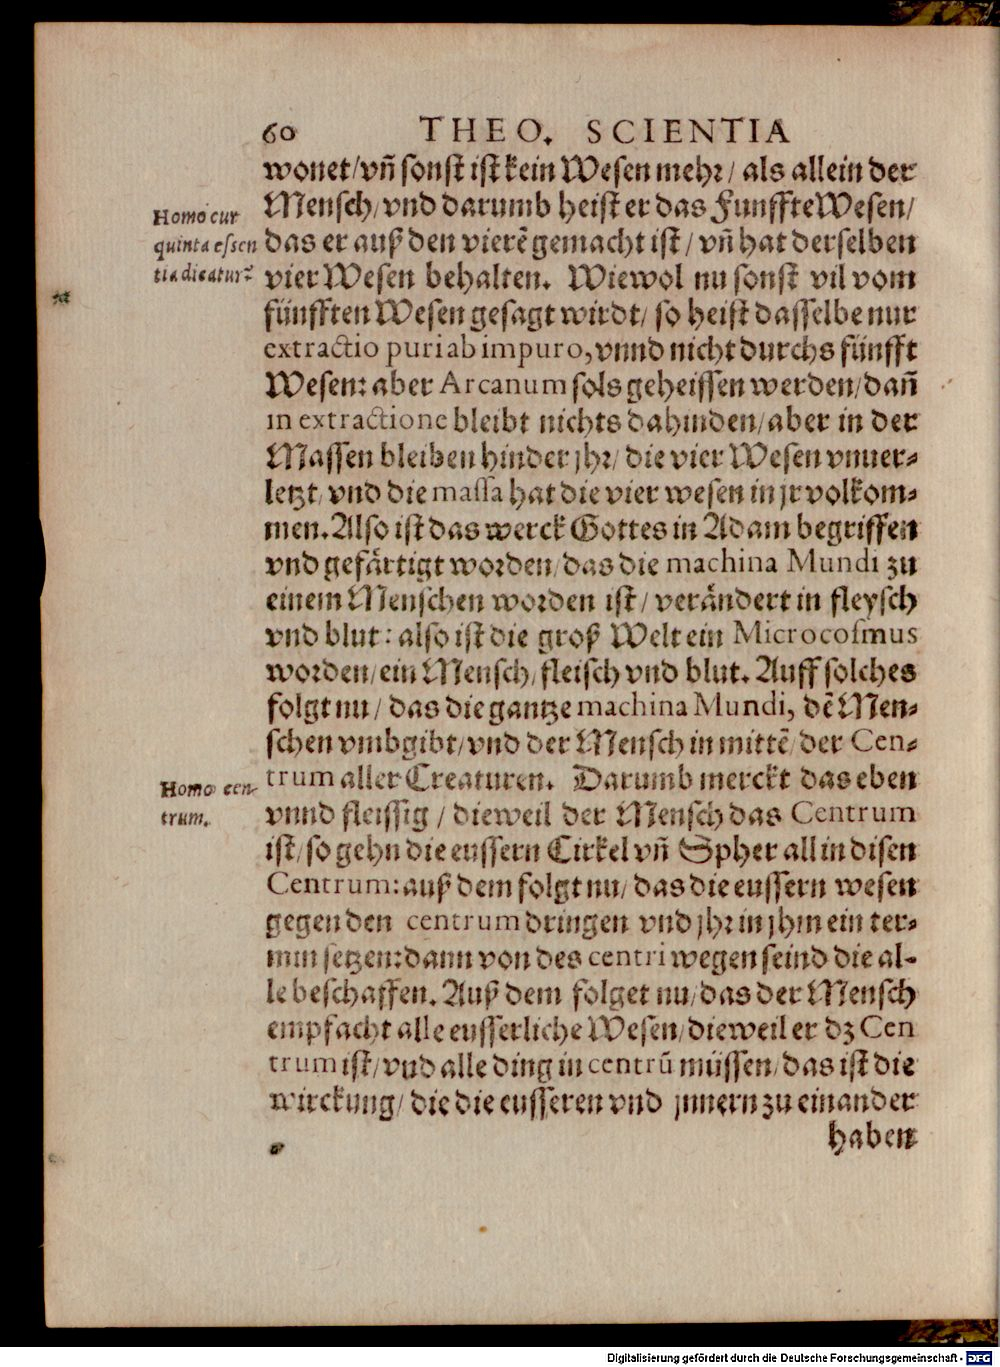 60 THEO. SCIENTIA
wonet/vñ sonst ist kein Wesen mehr/ als allein der
Mensch/vnd darumb heist er das Funffte Wesen/
Homo cur
quinta essen
tia dicatur?
das er auß den vierẽ gemacht ist/ vñ hat derselben
vier Wesen behalten. Wiewol nu sonst vil vom
fünfften Wesen gesagt wirdt/ so heist dasselbe nur
extractio puri ab impuro, vnnd nicht durchs fünfft
Wesen: aber Arcanum sols geheissen werden/dañ
in extractione bleibt nichts dahinden/aber in der
Massen bleiben hinder jhr/ die vier Wesen vnuer-
letzt/ vnd die massa hat die vier wesen in jr volkom-
men. Also ist das werck Gottes in Adam begriffen
vnd gefärtigt worden/das die machina Mundi zu
einem Menschen worden ist/ verändert in fleysch
vnd blut: also ist die groß Welt ein Microcosmus
worden/ein Mensch/fleisch vnd blut. Auff solches
folgt nu/ das die gantze machina Mundi, dẽ Men-
schen vmbgibt/vnd der Mensch in mittẽ/der Cen-
trum aller Creaturen. Darumb merckt das eben
Homo cen-
trum.
vnnd fleissig/ dieweil der Mensch das Centrum
ist/so gehn die eussern Cirkel vñ Spher all in disen
Centrum: auß dem folgt nu/das die eussern wesen
gegen den centrum dringen vnd jhr in jhm ein ter-
min setzen: dann von des centri wegen seind die al-
le beschaffen. Auß dem folget nu/das der Mensch
empfacht alle eusserliche Wesen/dieweil er dz Cen
trum ist/vnd alle ding in centrũ müssen/das ist die
wirckung/ die die eusseren vnd jnnern zu einander
haben
Digitalisierung gefördert durch die Deutsche Forschungsgemeinschaft - DFG